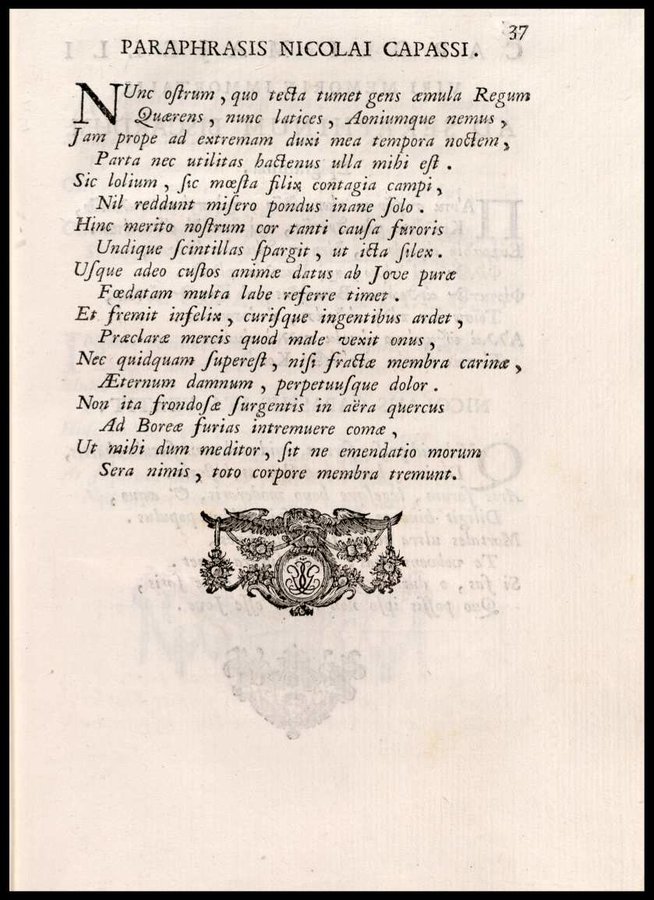 37
PARAPHRASIS NICOLAI CAPASSI.
NUnc oſtrum, quo tecta tumet gens æmula Regum
Quærens, nunc latices, Aoniumque nemus,
Jam prope ad extremam duxi mea tempora noctem,
Parta nec utilitas hactenus ulla mihi eſt.
Sic lolium, ſic mœſta filix contagia campi,
Nil reddunt miſero pondus inane ſolo.
Hinc merito noſtrum cor tanti cauſa furoris
Undique ſcintillas ſpargit, ut icta ſilex.
Uſque adeo cuſtos animæ datus ab Jove puræ
Fœdatam multa labe referre timet.
Et fremit infelix, curiſque ingentibus ardet,
Præclaræ mercis quod male vexit onus,
Nec quidquam ſupereſt, niſi fractæ membra carinæ,
Æternum damnum, perpetuuſque dolor.
Non ita frondoſæ ſurgentis in aëra quercus
Ad Boreæ furias intremuere comæ,
Ut mihi dum meditor, ſit ne emendatio morum
Sera nimis, toto corpore membra tremunt.